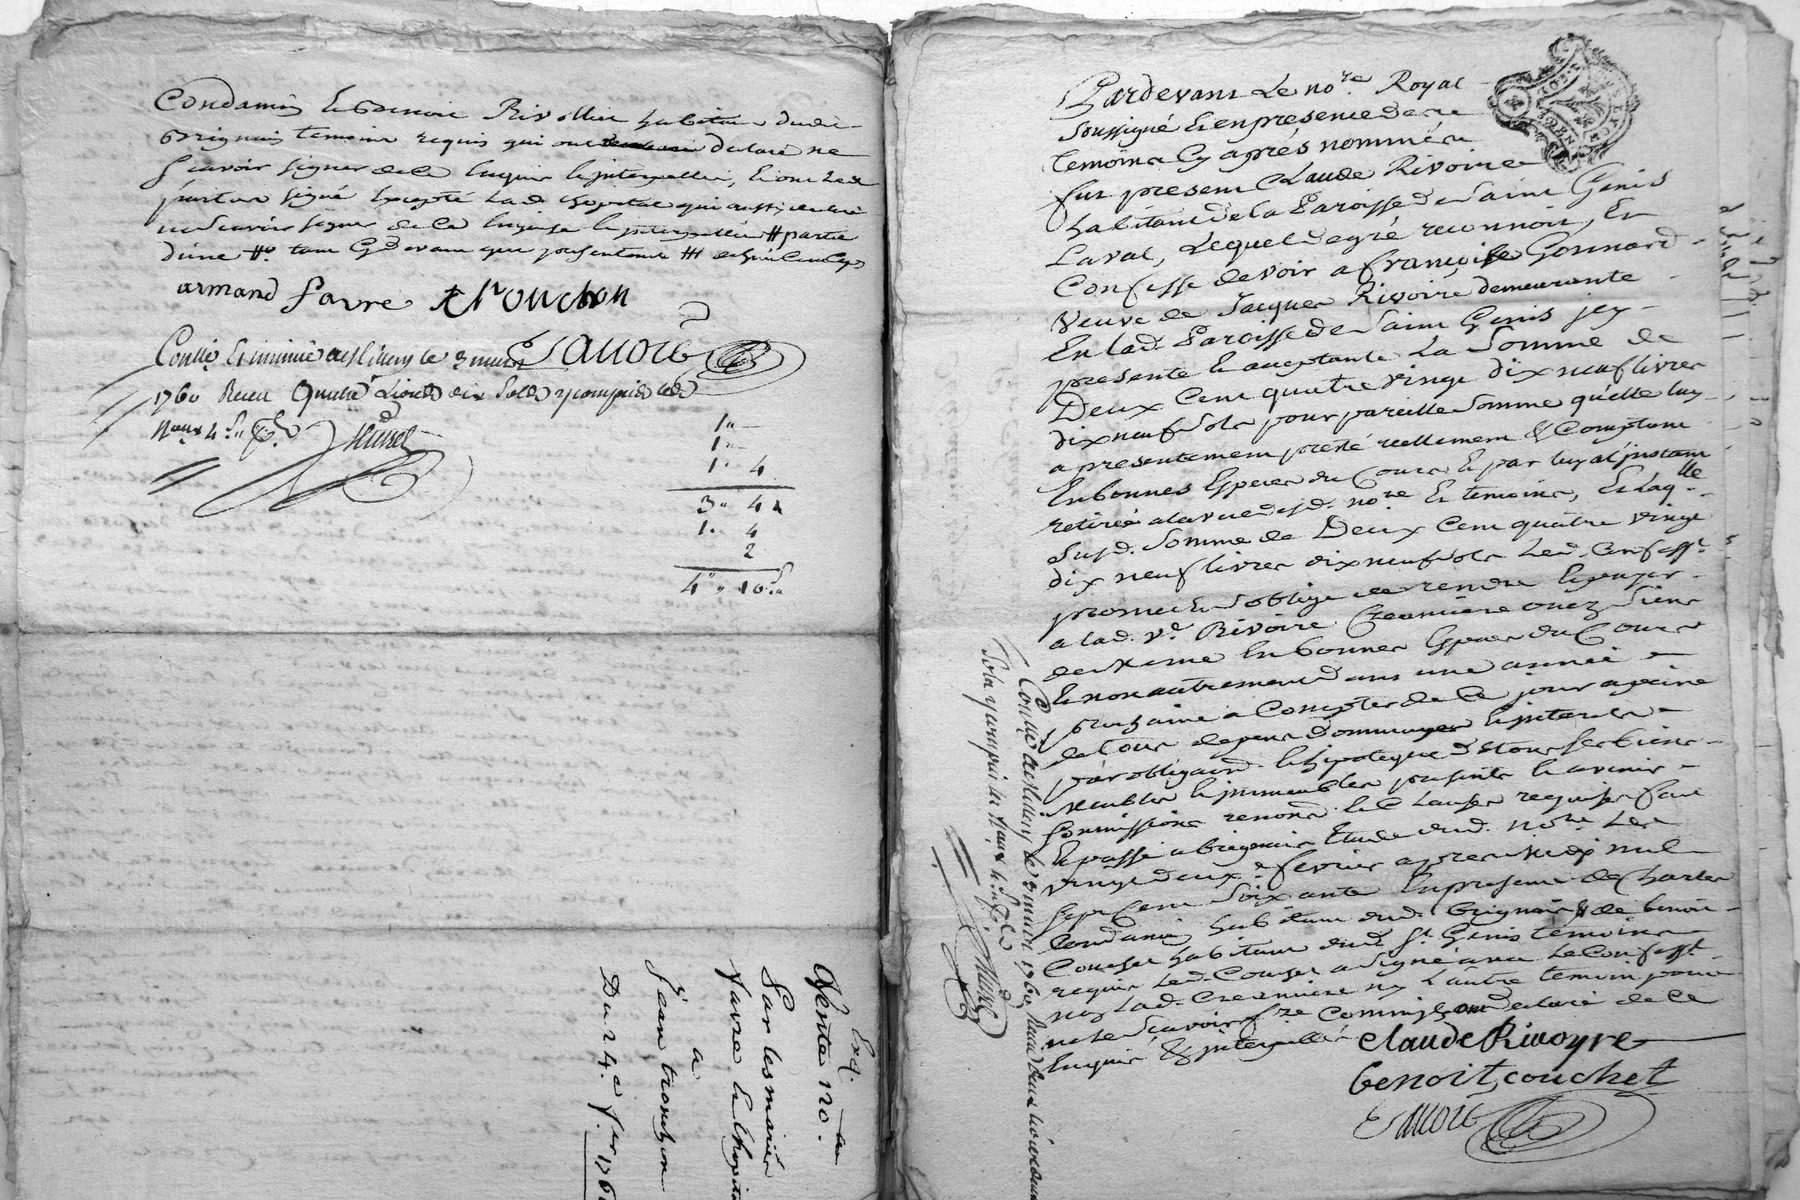 Condamin Et Benoit Rivollier habitans dudit
Brignais temoins requis qui ont declaré ne
sçavoir signer de ce Enquis et interpellés, Et ont les
parties signé Excepté lad. qui aussy declaré
ne sçavoir signer de ce Enquise et interpellée # partie
d'une
armand favre tronchon
Conllé Et insinué a le 3 mars
1760 Receu Quatre Livres dix Sols y compris les
Naux 4 s.
1 " —
1 " —
1 . 4
3 " 4
1 . 4
2
4 " 10 s
Exq.
Vente no.
Par les mariés
favre et lhopital
a
jean tronchon
Du 24.e f.er 176
Pardevant Le no.re Royal
soussigné Et en presence des
temoins Cy aprés nommés
fut present Claude Rivoire
habitant de la Paroisse de Saint Genis
Laval, Lequel de gré reconnoit, Et
Confesse devoir a françoise Gonnard
Veuve de Jacques Rivoire demeurante
En lad. Paroisse de Saint Genis jcy
presente Et acceptante La Somme de
Deux Cent quatre vingt dix neuf livres
dix neuf sols pour pareille Somme qu'elle luy
a presentement presté reellement & Comptant
En bonnes Especes du Cours Et par luy a l'instant
retirée a la vue desd. no.re Et temoins, Et laq.lle
susd. Somme de Deux Cent quatre vingt
dix neuf livres dix neuf sols Led. Confess.t
promet Et s'oblige de rendre Et payer
a lad. v.e Rivoire Creanciere ou ez siens
de Meme En bonnes Especes du Cours
Et non autrement dans une année
prochaine a Compter de Ce jour a peine
de tous depens Dommages Et interets
par obligaõn Et hipoteque de tous ses biens
Meubles Et immeubles presents Et a venir
soumissions renonõns Et Clauses requises fait
Et passé a Brignais Etude dud. no.re Le
vingt deux.e fevrier apres midy mil
sept Cent Soixante En presence de Charles
Condamin habitant dud. Brignais & de benoit
Couchet habitant dud. S.t Genis temoins
requis Led. Couchet a signé avec Le Confess.t
non Lad. Creanciere ny L'autre temoin pour
ne Sçavoir f.re Comme ils ont declaré de Ce
Enquis & interpellés
claude Rivoyre
benoit couchet
Conllé a le 3 mars 1760 Receu deux livres deux
Sols y compris les Naux 4 s.